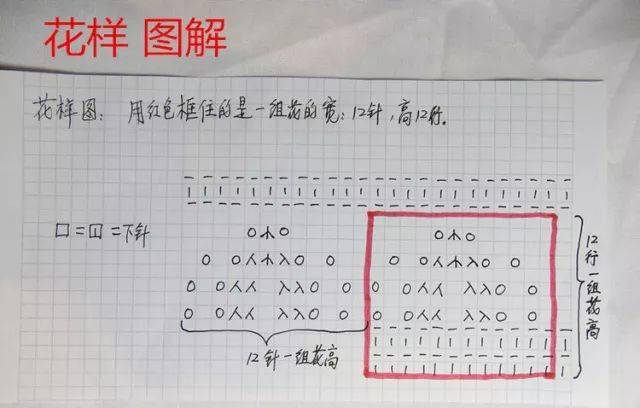 花样 图解
花样图：用红色框住的是一组花的宽：12针，高12行。
囗=囗=下针
12行一组花高
12针一组花高